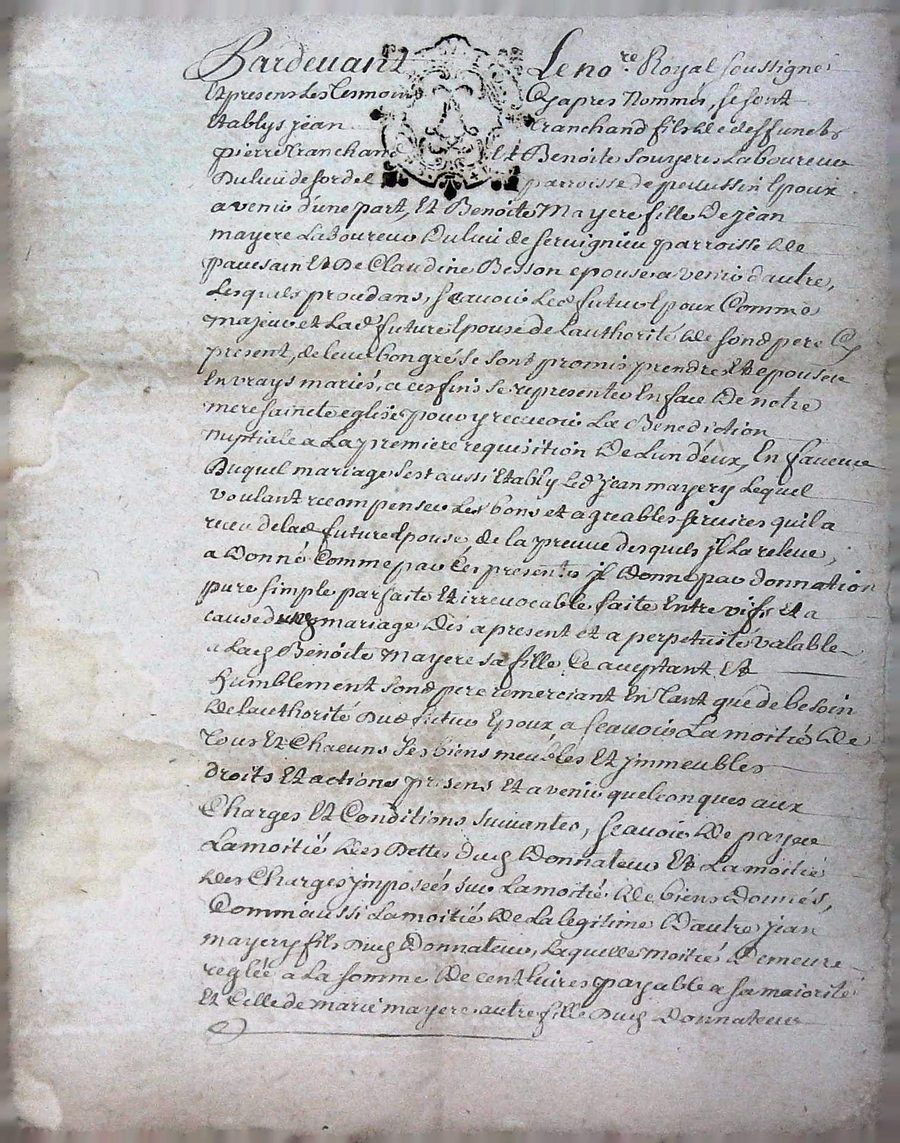 Pardevant Le no.re Royal soussigné
Et presens Les tesmoins Cyapres Nommés, se sont
Etablys jean tranchand fils de deffuncts
pierre tranchand Et Benoite Souyere Laboureur
Du lieu de sordel parroisse de pelussin Epoux
avenir d'une part, Et Benoite Mayere fille De jean
mayere Laboureur Du lieu de servignieu parroisse de
pavesain Et De Claudine Besson epouse a venir d'autre,
Lesquels proudans, scavoir Led futur Epoux Comme
majeur et Lad future Epouse de L'authorité de sond pere Cy
present, de leur bon gré se sont promis prendre Et Epouser
En vrays mariés, a ces fins se representer En face De notre
mere saincte eglise pour y recevoir La Benediction
nuptiale a La premiere requisition De Lun d'eux, En faveur
Duquel mariage sest aussi Etably Led jean mayery Lequel
voulant recompenser Les bons et agreables services qu'il a
receu de lad future Epouse, de la preuve desquels jl La releve,
a Donné Comme par Ces presentes jl Donne par donnation
pure simple parfaite Et irrevocable faite Entre vifs Et a
cause de mariage Dès a present et a perpetuité valable
a Lad Benoite Mayere sa fille Ce aceptant Et
humblement sond pere remerciant En tant que de besoin
de L'authorité Dud futur Epoux a scavoir La moitié de
Tous Et Chacuns ses biens meubles Et jmmeubles
droits Et actions presens Et avenir quelconques aux
Charges Et Conditions suivantes, scavoir de payer
La moitié des Dettes Dud Donnateur Et La moitié
des Charges jmposées sur La moitié de biens Donnés,
Comm'aussi La moitié de La legitime D'autre jean
mayery fils Dud Donnateur, Laquelle moitié Demeure
reglée a La somme De cent livres payable a sa majorité
Et Celle de marie mayere autre fille Dud Donnateur